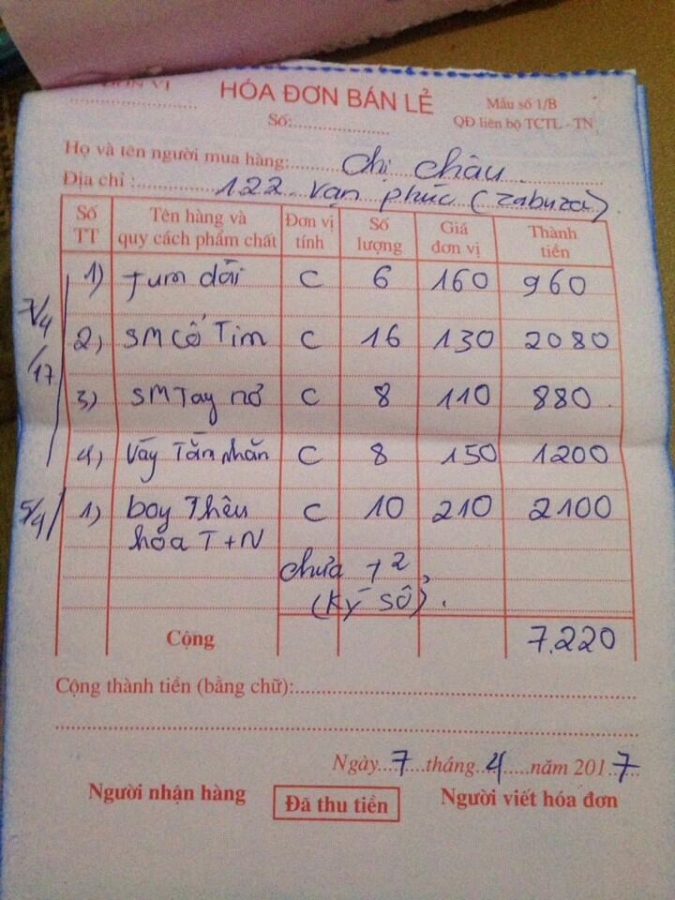 ĐƠN VỊ
HÓA ĐƠN BÁN LẺ
Mẫu số 1/B
Số:
QĐ liên bộ TCTL - TN
Họ và tên người mua hàng: Chị Châu
Địa chỉ : 122 Vạn phúc (Zabuza)
Số TT Tên hàng và quy cách phẩm chất Đơn vị tính Số lượng Giá đơn vị Thành tiền
7/4/17
1) Jum dài C 6 160 960
2) SM Cổ Tim C 16 130 2080
3) SM Tay nơ C 8 110 880
4) Váy Tằn nhăn C 8 150 1200
5/4 1) boy Thêu C 10 210 2100
hóa T+N
chưa T2
(Ký sổ).
Cộng 7.220
Cộng thành tiền (bằng chữ):
Ngày 7 tháng 4 năm 2017
Người nhận hàng Đã thu tiền Người viết hóa đơn